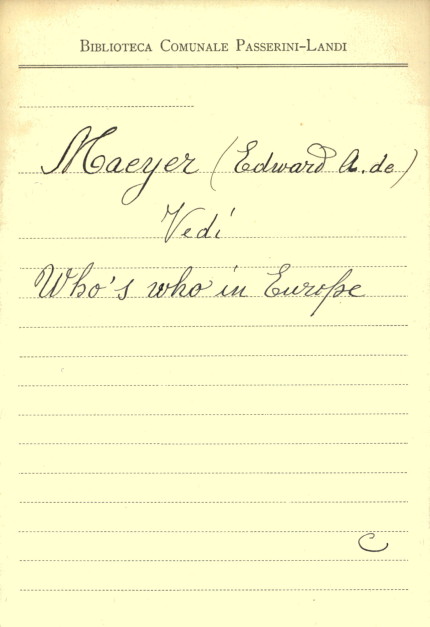 Biblioteca Comunale Passerini-Landi
Maeyer (Edward A. de)
Vedi
Who's who in Europe
C